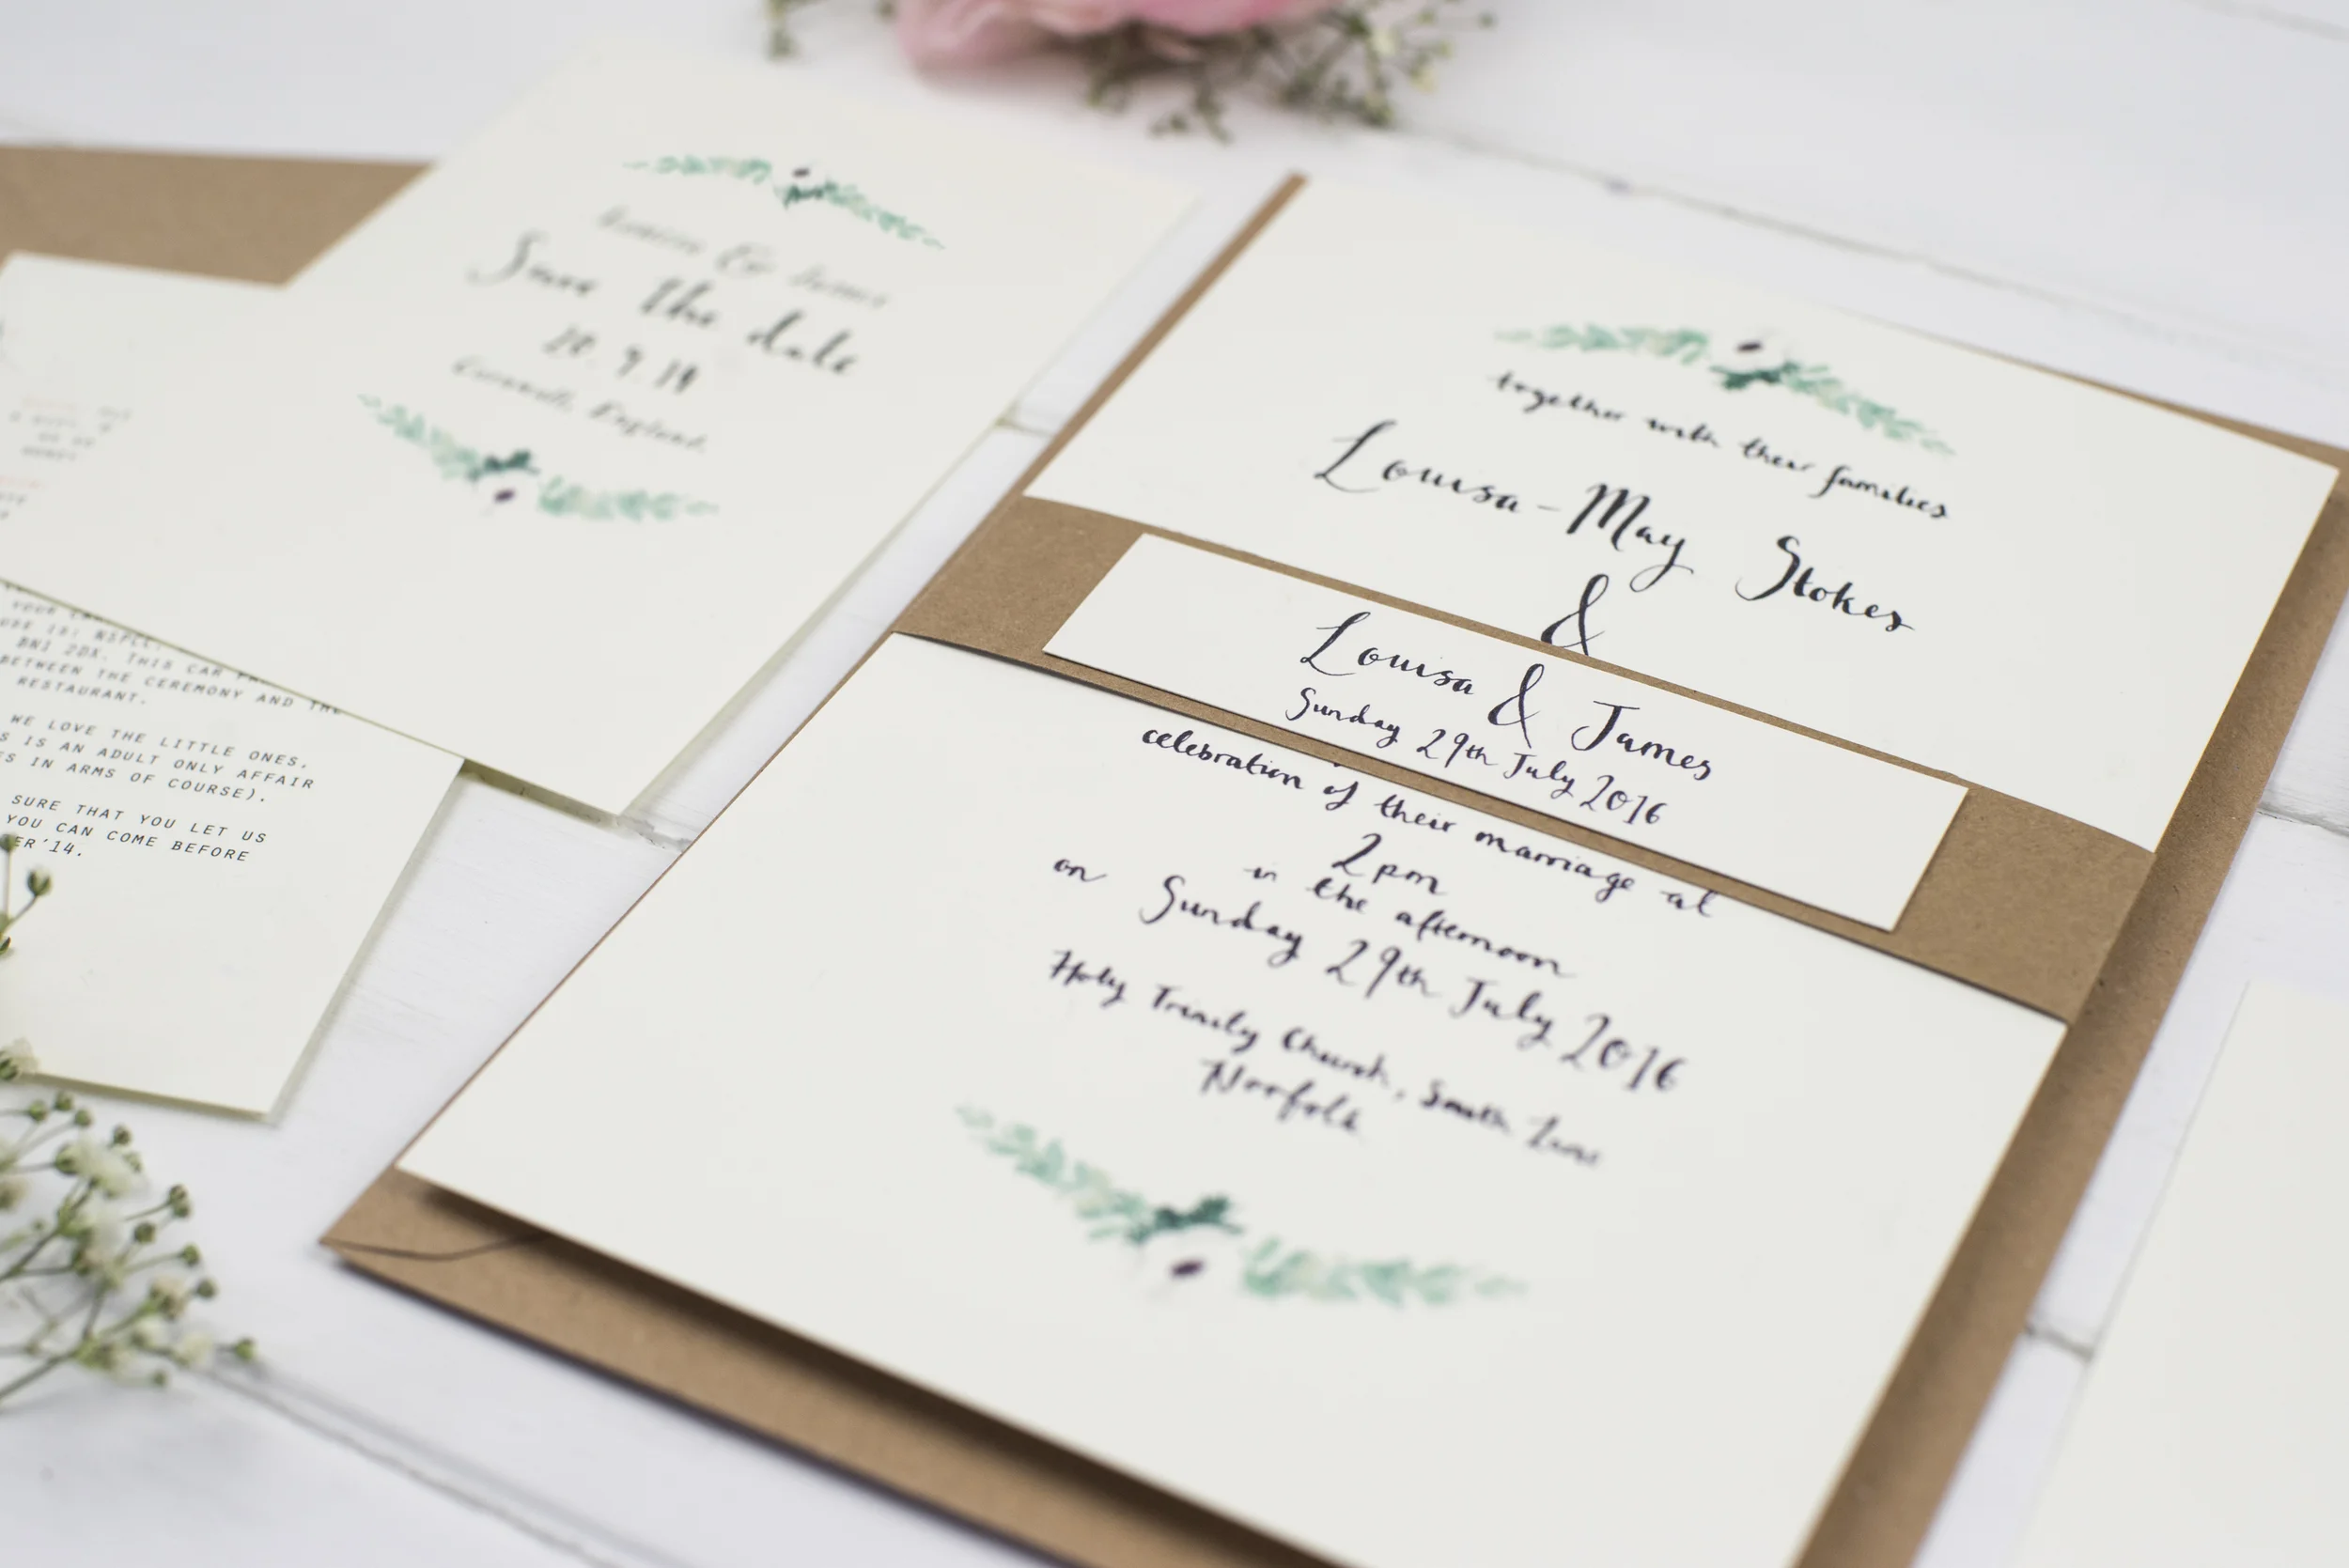 &
Save the date
Cornwall, England.
YOUR
BN1 2DX. THIS CAR
BETWEEN THE CEREMONY AND THE
RESTAURANT.
WE LOVE THE LITTLE ONES,
IS AN ADULT ONLY AFFAIR
IN ARMS OF COURSE).
SURE THAT YOU LET US
YOU CAN COME BEFORE
'14.
together with their families
Louisa-May Stokes
&
Louisa & James
Sunday 29th July 2016
celebration of their marriage at
2pm
in the afternoon
on Sunday 29th July 2016
Holy Trinity Church, South
Norfolk